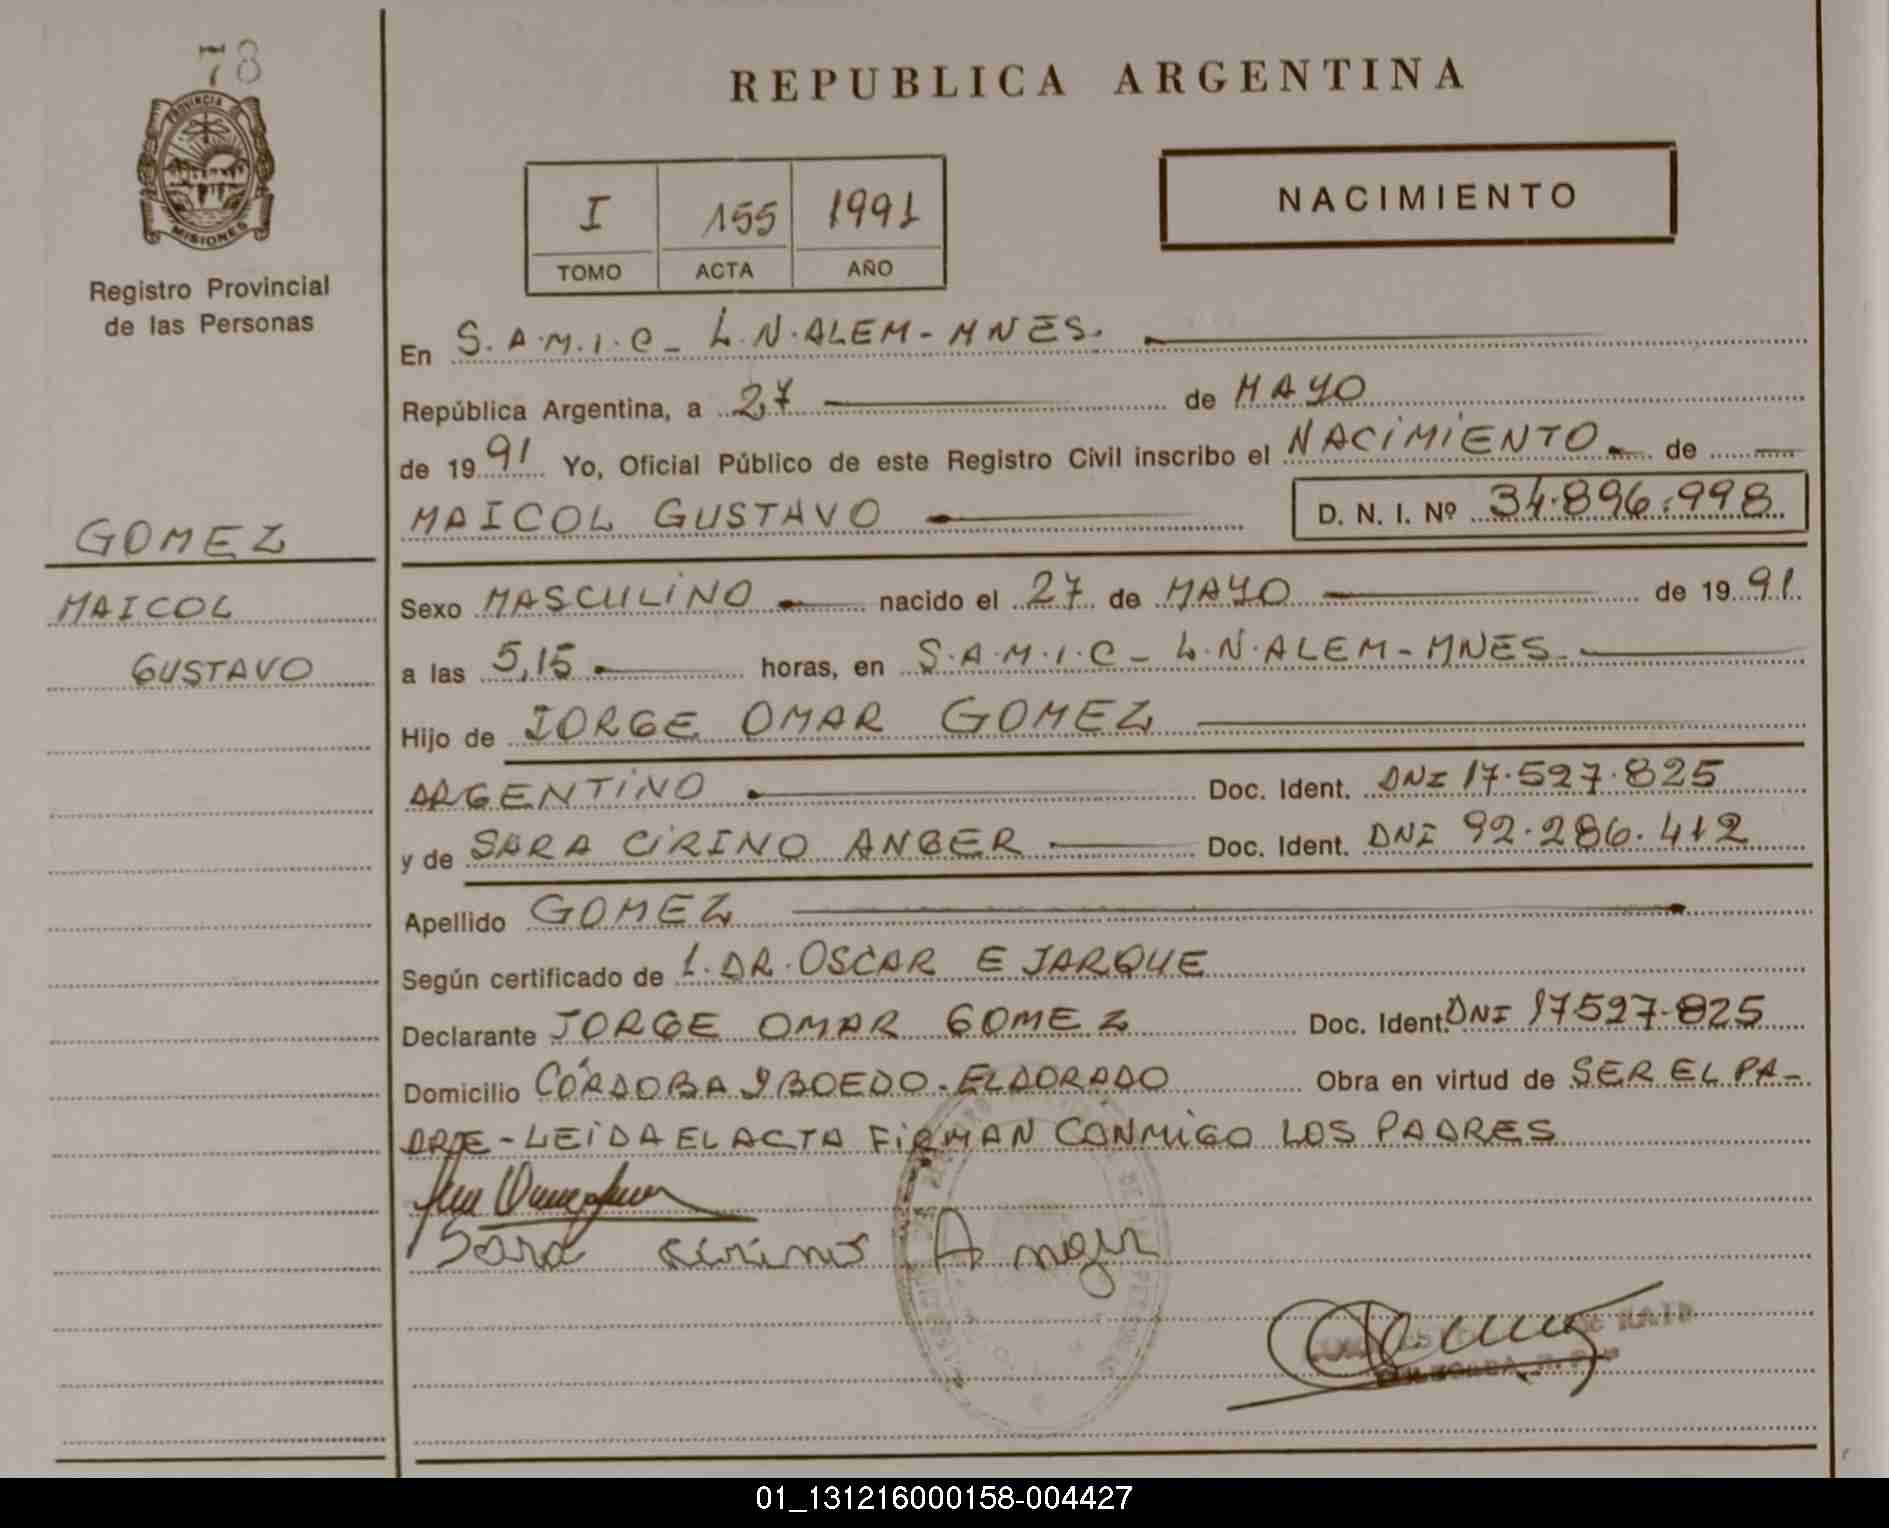 78
PROVINCIA
MISIONES
Registro Provincial
de las Personas
GOMEZ
MAICOL
GUSTAVO
REPUBLICA ARGENTINA
I 155 1991
TOMO ACTA AÑO
NACIMIENTO
En S.A.M.I.C - L.N.ALEM - MNES.
República Argentina, a 27 de MAYO
de 1991 Yo, Oficial Público de este Registro Civil inscribo el NACIMIENTO de
MAICOL GUSTAVO D. N. I. Nº 34.896.998
Sexo MASCULINO nacido el 27 de MAYO de 1991.
a las 5,15 horas, en S.A.M.I.C - L.N.ALEM - MNES
Hijo de JORGE OMAR GOMEZ
ARGENTINO Doc. Ident. DNI 17.527.825
y de SARA CIRINO ANGER Doc. Ident. DNI 92.286.412
Apellido GOMEZ
Según certificado de 1. DR. OSCAR E JARQUE
Declarante JORGE OMAR GOMEZ Doc. Ident. DNI 17527.825
Domicilio CÓRDOBA Y BOEDO - ELDORADO Obra en virtud de SER EL PA-
DRE - LEIDA EL ACTA FIRMAN CONMIGO LOS PADRES
Sara Cirino Anger
01_131216000158-004427